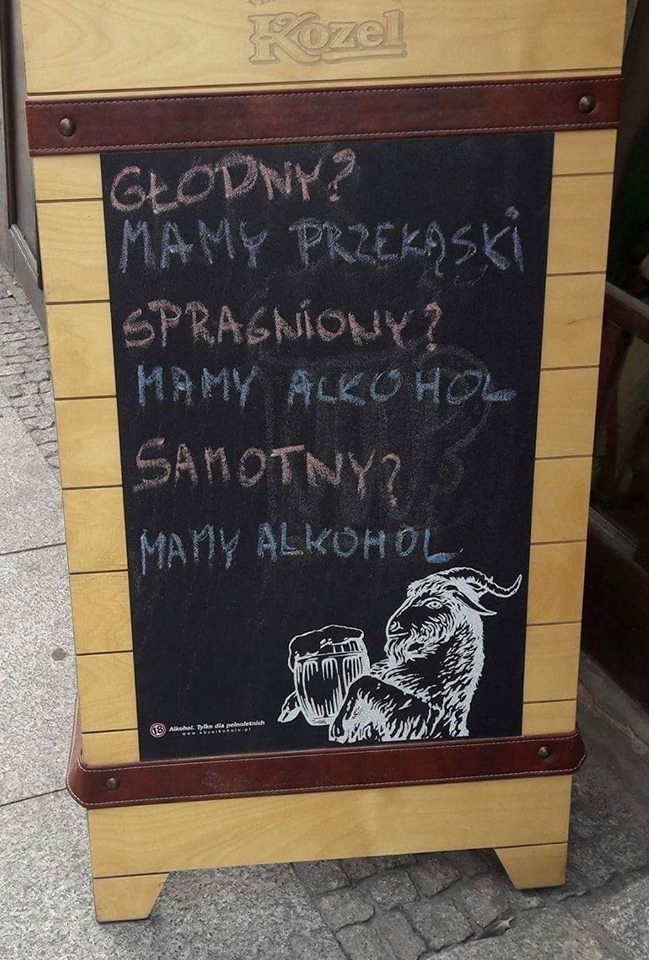 Kozel
GŁODNY?
MAMY PRZEKĄSKI
SPRAGNIONY?
MAMY ALKOHOL
SAMOTNY?
MAMY ALKOHOL
18 Alkohol. Tylko dla pełnoletnich
www.abcalkoholu.pl